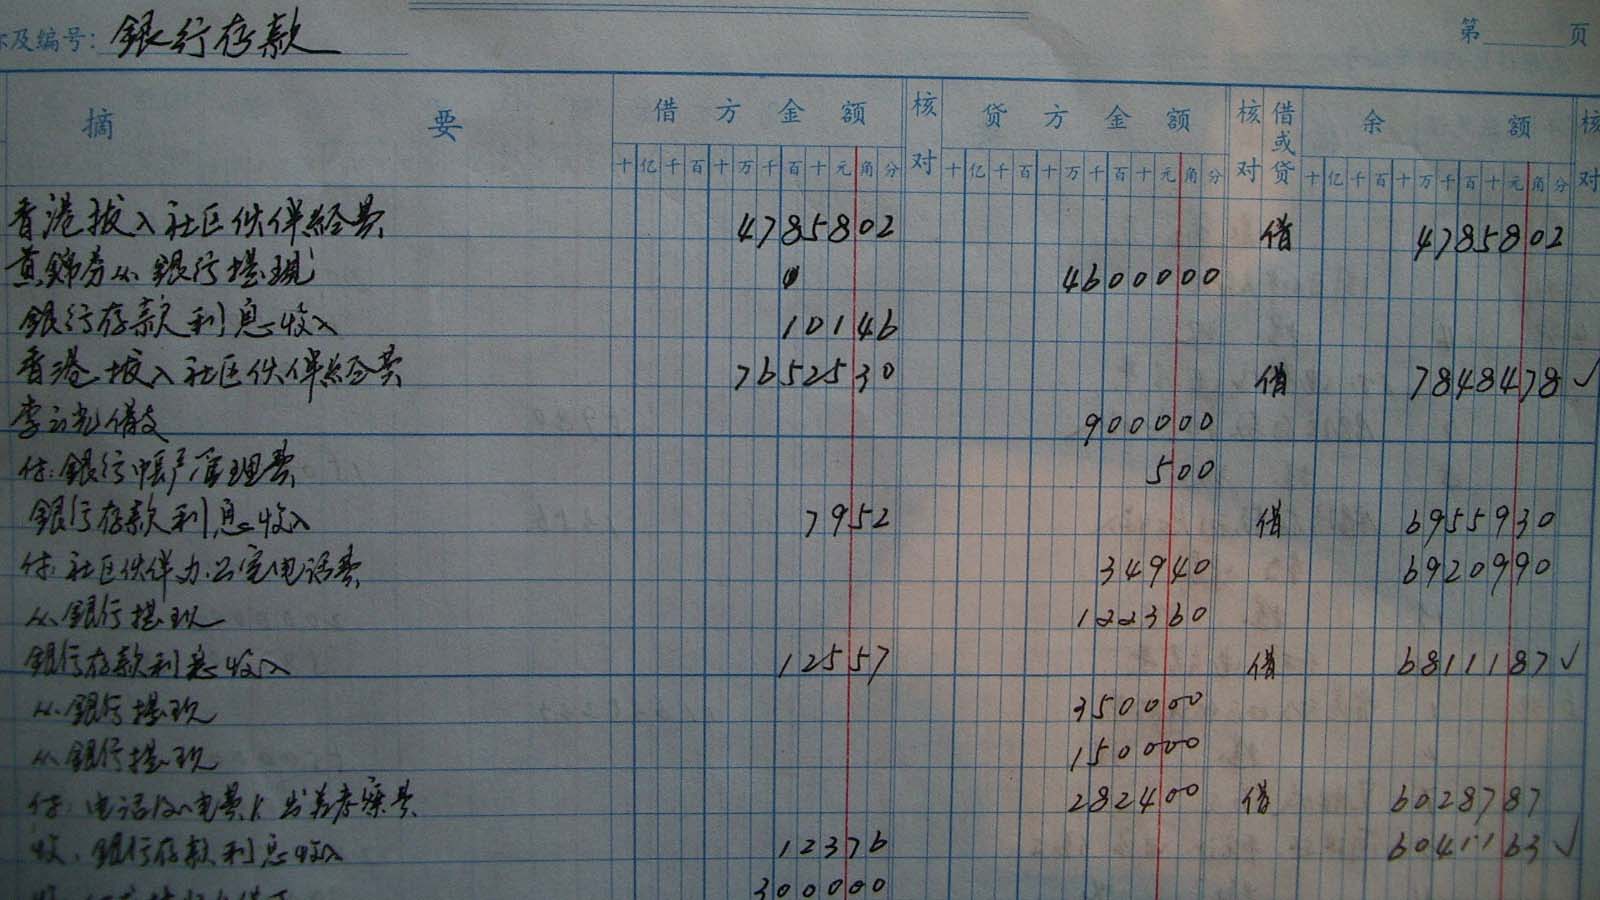 及编号: 銀行存款 第 页
摘要 借方金额 核对 贷方金额 核对 借或贷 余额 核对
十亿千百十万千百十元角分 十亿千百十万千百十元角分 十亿千百十万千百十元角分
香港拔入社区伙伴经费 4785802 借 4785802
从銀行提現 4600000
銀行存款利息收入 10146
香港拔入社区伙伴经费 7652530 借 7848478 ✓
借支 900000
付:銀行帳户管理费 500
銀行存款利息收入 7952 借 6955930
付:社区伙伴办公室电话费 34940 6920990
从銀行提现 122360
銀行存款利息收入 12557 借 6811187 ✓
从銀行提现 350000
从銀行提现 150000
付:电话 电费 出差 费 282400 借 6028787
收:銀行存款利息收入 12376 6041163 ✓
300000